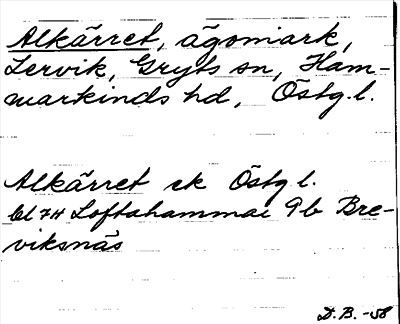 Alkärret, ägomark,
Lervik, Gryts sn, Ham-
markinds hd, Östg.l.
Alkärret ek Östg l.
bl 7H Loftahammar 9b Bre-
viksnäs
D.B. -58